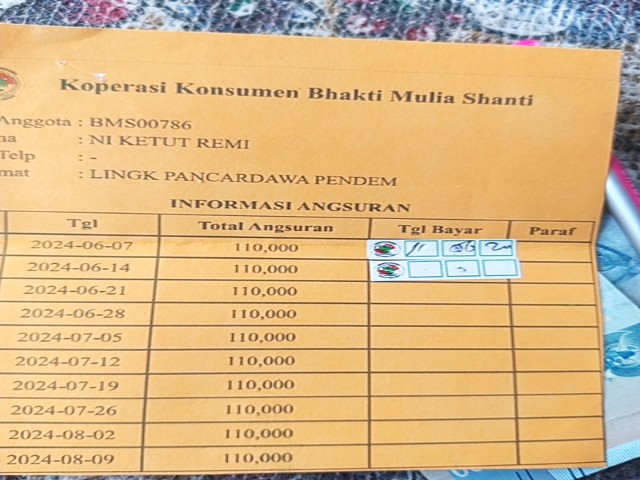 Koperasi Konsumen Bhakti Mulia Shanti
Anggota : BMS00786
na : NI KETUT REMI
Telp : -
mat : LINGK PANCARDAWA PENDEM
INFORMASI ANGSURAN
Tgl Total Angsuran Tgl Bayar Paraf
2024-06-07 110,000
2024-06-14 110,000
2024-06-21 110,000
2024-06-28 110,000
2024-07-05 110,000
2024-07-12 110,000
2024-07-19 110,000
2024-07-26 110,000
2024-08-02 110,000
2024-08-09 110,000